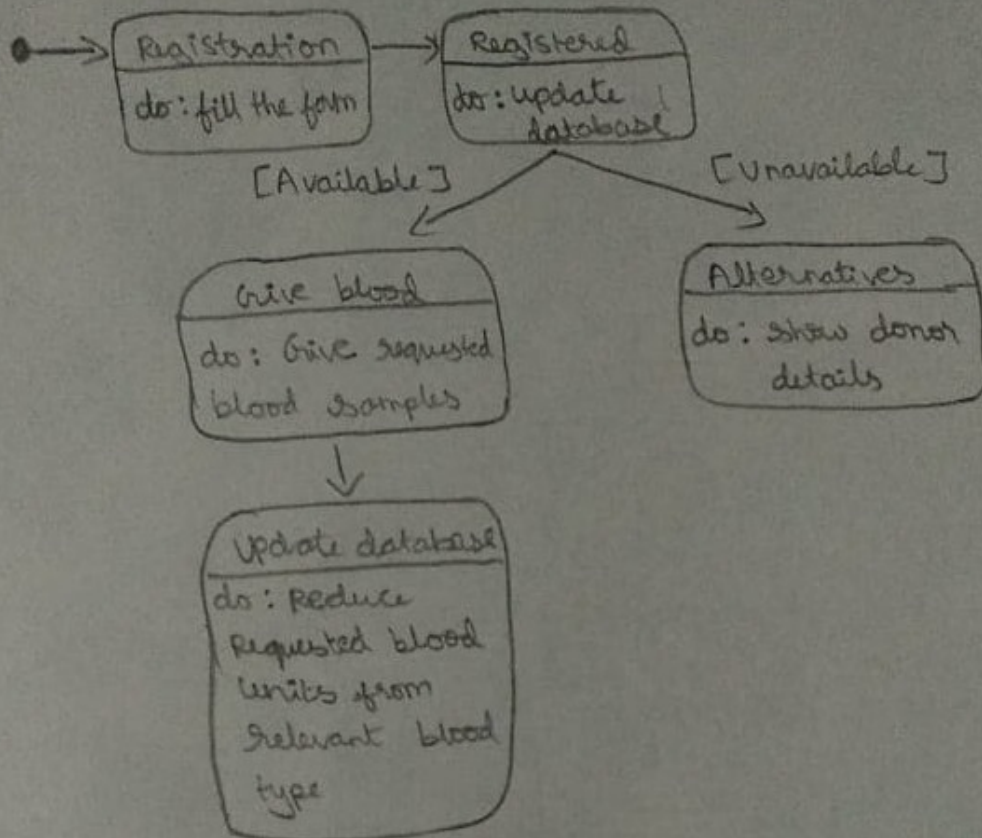 Registration
do: fill the form
Registered
do: update
database
[Available]
[Unavailable]
Give blood
do: Give requested
blood samples
Alternatives
do: show donor
details
Update database
do: Reduce
Requested blood
units from
relevant blood
type